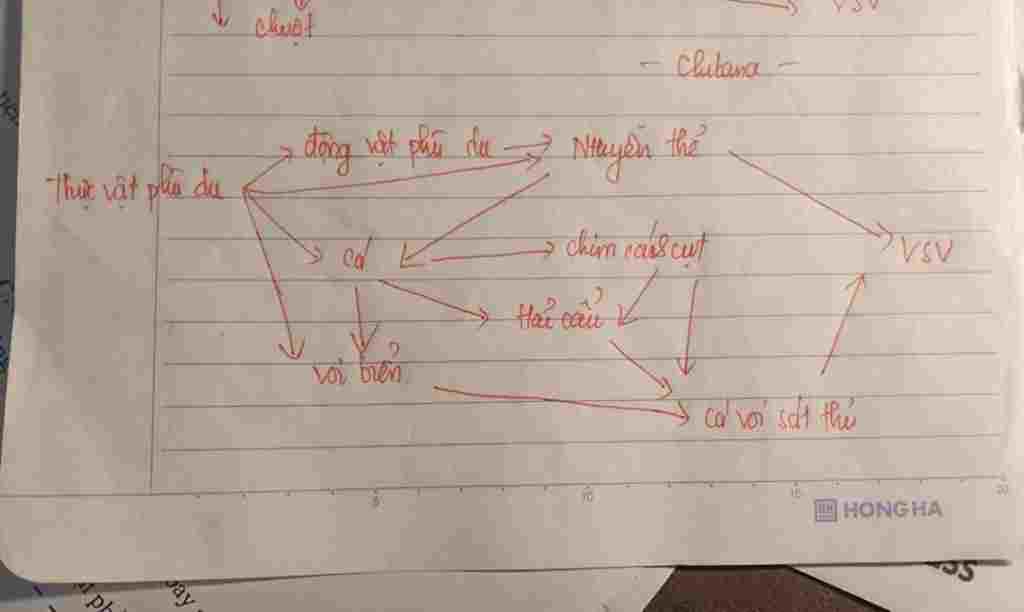 VSV
chuột
động vật phù du
Nguyên thể
Thực vật phù du
cá
chim cánh cụt
VSV
Hải cẩu
voi biển
cá voi sát thủ
5
10
15
20
HH HONG HA
ESS